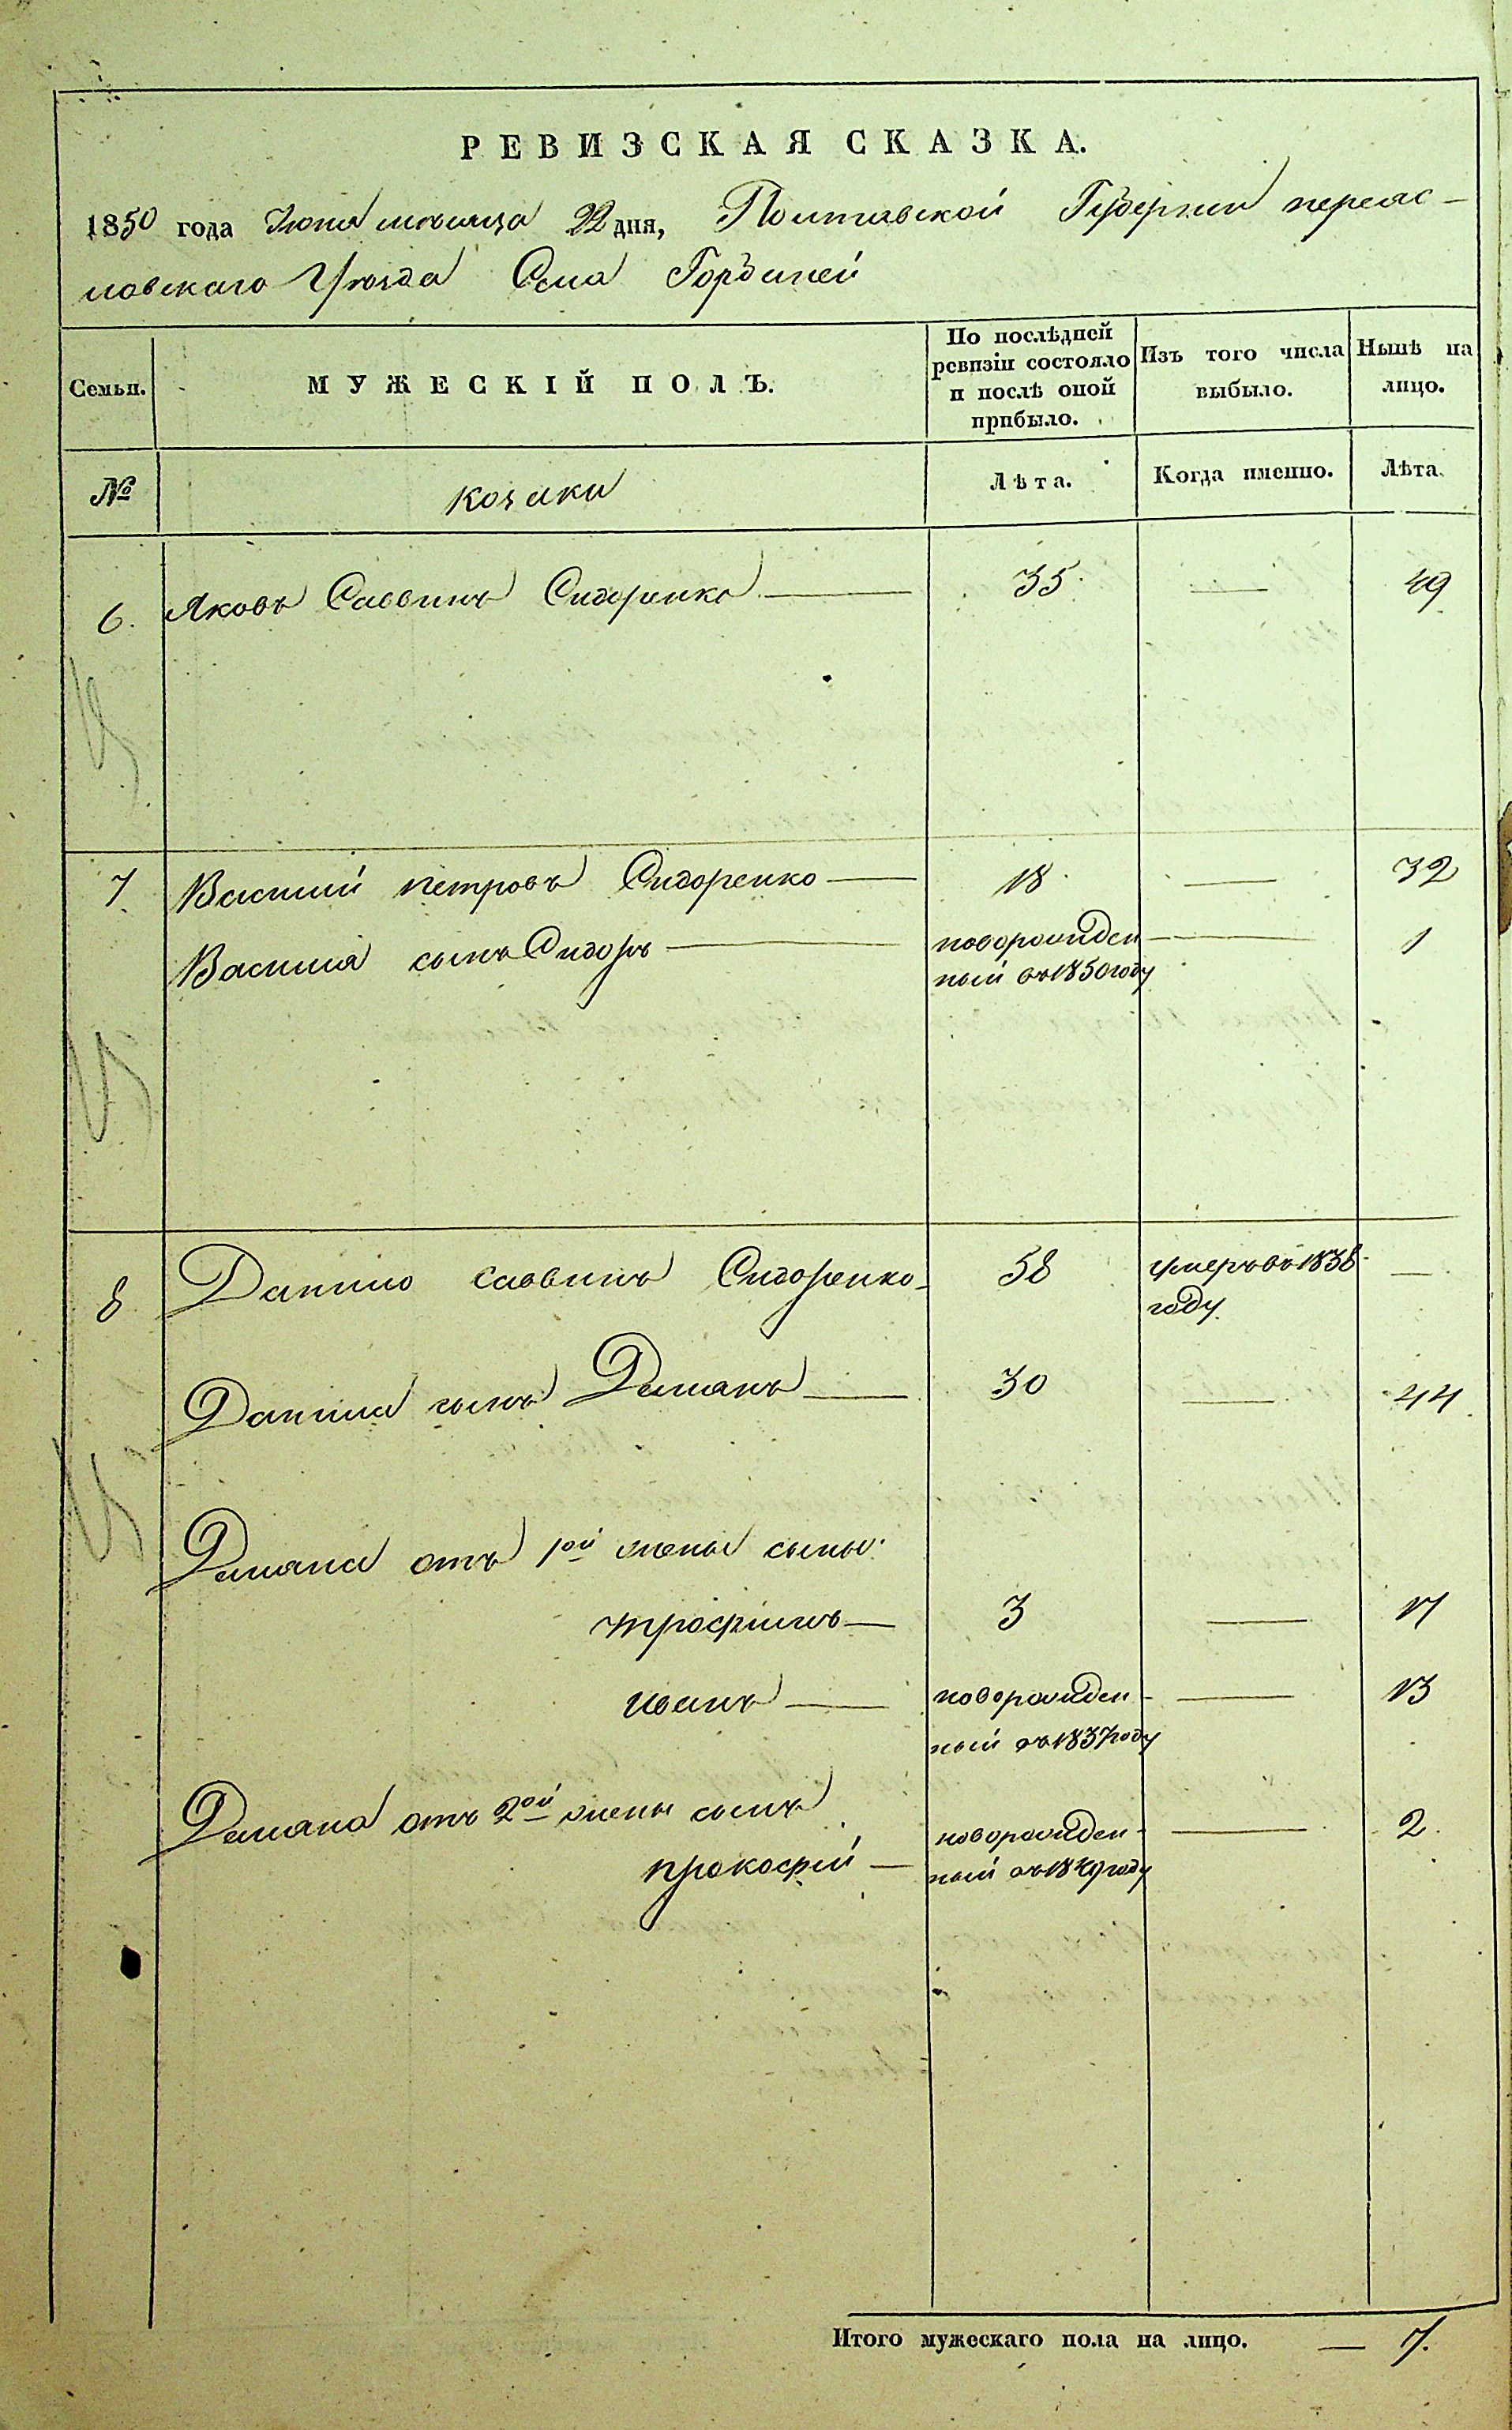 РЕВИЗСКАЯ СКАЗКА.
1850 года Июня месяца 22 дня, Полтавской Губернии переяс-
лавскаго Уѣзда Села
Семьи.
МУЖЕСКІЙ ПОЛЪ.
По послѣдней
ревизіи состояло
и послѣ оной
прибыло.
Изъ того числа
выбыло.
Нынѣ на
лицо.
№
козаки
Лѣта.
Когда именно.
Лѣта.
6. Яковъ Саввинъ Сидоренко — 35. — 49
7 Василий петровъ Сидоренко — 18 — 32
Василия сынъ Сидоръ — новорожден — 1
ный въ 1850 году
8 Данило саввинъ Сидоренко 58 умеръ въ 1838 —
году.
Данила сынъ Демянъ — 30 — 44
Демяна отъ 1ой жены сыны:
трофимъ — 3 — 17
иванъ — новорожден — 13
ный въ 1837 году
Демяна отъ 2ой жены сынъ
прокофій — новорожден — 2.
ный въ 1849 году
Итого мужескаго пола на лицо. — 7.